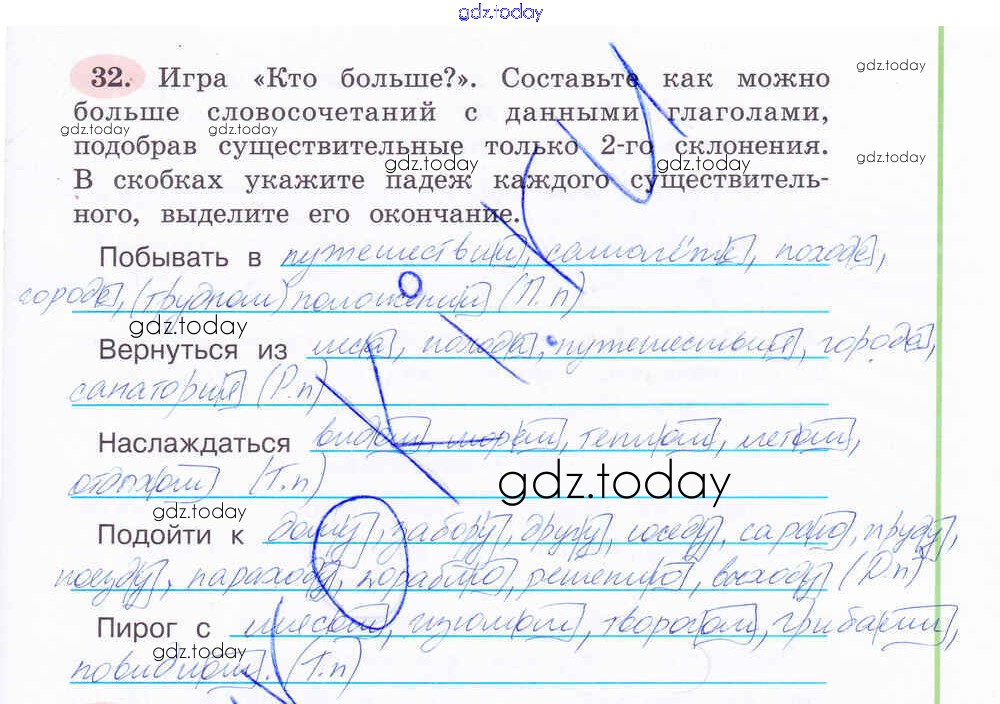 gdz.today
32. Игра «Кто больше?». Составьте как можно
gdz.today
больше словосочетаний с данными глаголами,
gdz.today
подобрав существительные только 2-го склонения.
gdz.today
gdz.today
В скобках укажите падеж каждого существитель-
ного, выделите его окончание.
Побывать в путешествии, самолёте, походе,
городе, (трудном) положении (П.п)
gdz.today
Вернуться из леса, похода, путешествия, города,
санатория (Р.п)
Наслаждаться видом, морем, теплом, летом,
отдыхом (Т.п)
gdz.today
gdz.today
Подойти к дому, забору, другу, соседу, сараю, пруду,
поезду, пароходу, кораблю, решению, выходу (Д.п)
Пирог с мясом, изюмом, творогом, грибами,
повидлом. (Т.п)
gdz.today